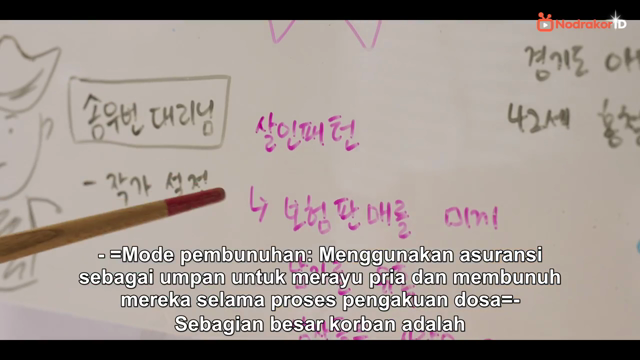 Nodrakor iD
경기도
42세 홍천
송우빈 대리님
- 작가 설정
살인패턴
↳ 보험 판매를 미끼
- =Mode pembunuhan: Menggunakan asuransi
sebagai umpan untuk merayu pria dan membunuh
mereka selama proses pengakuan dosa=-
Sebagian besar korban adalah